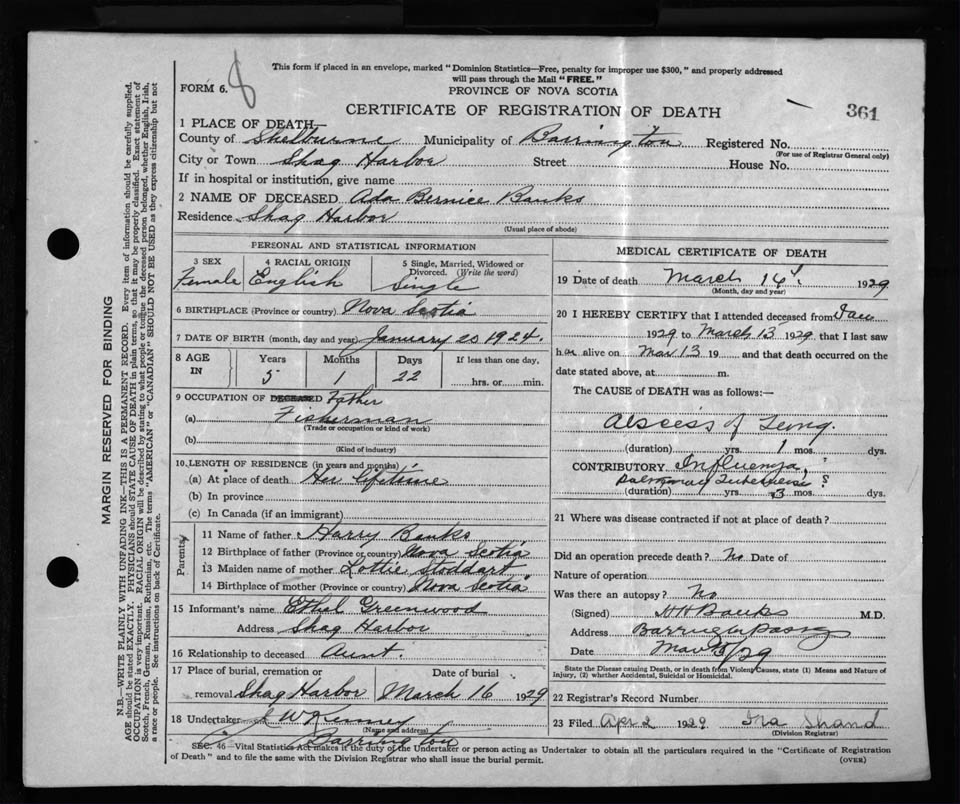 This form if placed in an envelope, marked "Dominion Statistics—Free, penalty for improper use $300," and properly addressed
will pass through the Mail "FREE."
FORM 6. 8
PROVINCE OF NOVA SCOTIA
CERTIFICATE OF REGISTRATION OF DEATH
361
1 PLACE OF DEATH—
County of Shelburne Municipality of Barrington Registered No.
(For use of Registrar General only)
City or Town Shag Harbor Street House No.
If in hospital or institution, give name
2 NAME OF DECEASED Ada Bernice Banks
Residence Shag Harbor
(Usual place of abode)
PERSONAL AND STATISTICAL INFORMATION
3 SEX 4 RACIAL ORIGIN 5 Single, Married, Widowed or
Divorced. (Write the word)
Female English Single
6 BIRTHPLACE (Province or country) Nova Scotia
7 DATE OF BIRTH (month, day and year) January 20 1924.
8 AGE IN Years Months Days If less than one day,
5 1 22 hrs. or min.
9 OCCUPATION OF DECEASED Father
(a) Fisherman
(Trade or occupation or kind of work)
(b)
(Kind of industry)
10 LENGTH OF RESIDENCE (in years and months)
(a) At place of death Her lifetime
(b) In province
(c) In Canada (if an immigrant)
Parents
11 Name of father Harry Banks
12 Birthplace of father (Province or country) Nova Scotia
13 Maiden name of mother Lottie Stoddart
14 Birthplace of mother (Province or country) Nova Scotia
15 Informant's name Ethel Greenwood
Address Shag Harbor
16 Relationship to deceased Aunt.
17 Place of burial, cremation or Date of burial
removal Shag Harbor March 16 1929
18 Undertaker W Kenney
(Name and address)
Barrington
MEDICAL CERTIFICATE OF DEATH
19 Date of death March 14 1929
(Month, day and year)
20 I HEREBY CERTIFY that I attended deceased from Jan
1929 to March 13 1929, that I last saw
her alive on Mar 13 19 and that death occurred on
date stated above, at m.
The CAUSE of DEATH was as follows:—
Abscess of Lung.
(duration) yrs. 1 mos. dys.
CONTRIBUTORY Influenza, ?
Pulmonary Tuberculosis ?
(duration) yrs. 3 mos. dys.
21 Where was disease contracted if not at place of death?
Did an operation precede death? No Date of
Nature of operation
Was there an autopsy? No
(Signed) H H Banks M.D.
Address Barrington Passage
Date Mar 15/29
State the Disease causing Death, or in death from Violent Causes, state (1) Means and Nature of
Injury, (2) whether Accidental, Suicidal or Homicidal.
22 Registrar's Record Number
23 Filed Apr 2 1929 Ira Shand
(Division Registrar)
SEC. 46—Vital Statistics Act makes it the duty of the Undertaker or person acting as Undertaker to obtain all the particulars required in the "Certificate of Registration
of Death" and to file the same with the Division Registrar who shall issue the burial permit.
(OVER)
MARGIN RESERVED FOR BINDING
N.B.—WRITE PLAINLY WITH UNFADING INK—THIS IS A PERMANENT RECORD. Every item of information should be carefully supplied.
AGE should be stated EXACTLY. PHYSICIANS should STATE CAUSE OF DEATH in plain terms, so that it may be properly classified. Exact statement of
OCCUPATION is very important. RACIAL ORIGIN will be described by stating to what people or tongue the deceased person belonged, whether English, Irish,
Scotch, French, German, Russian, Ruthenian, etc. The terms "AMERICAN" or "CANADIAN" SHOULD NOT BE USED as they express citizenship but not
a race or people. See instructions on back of Certificate.